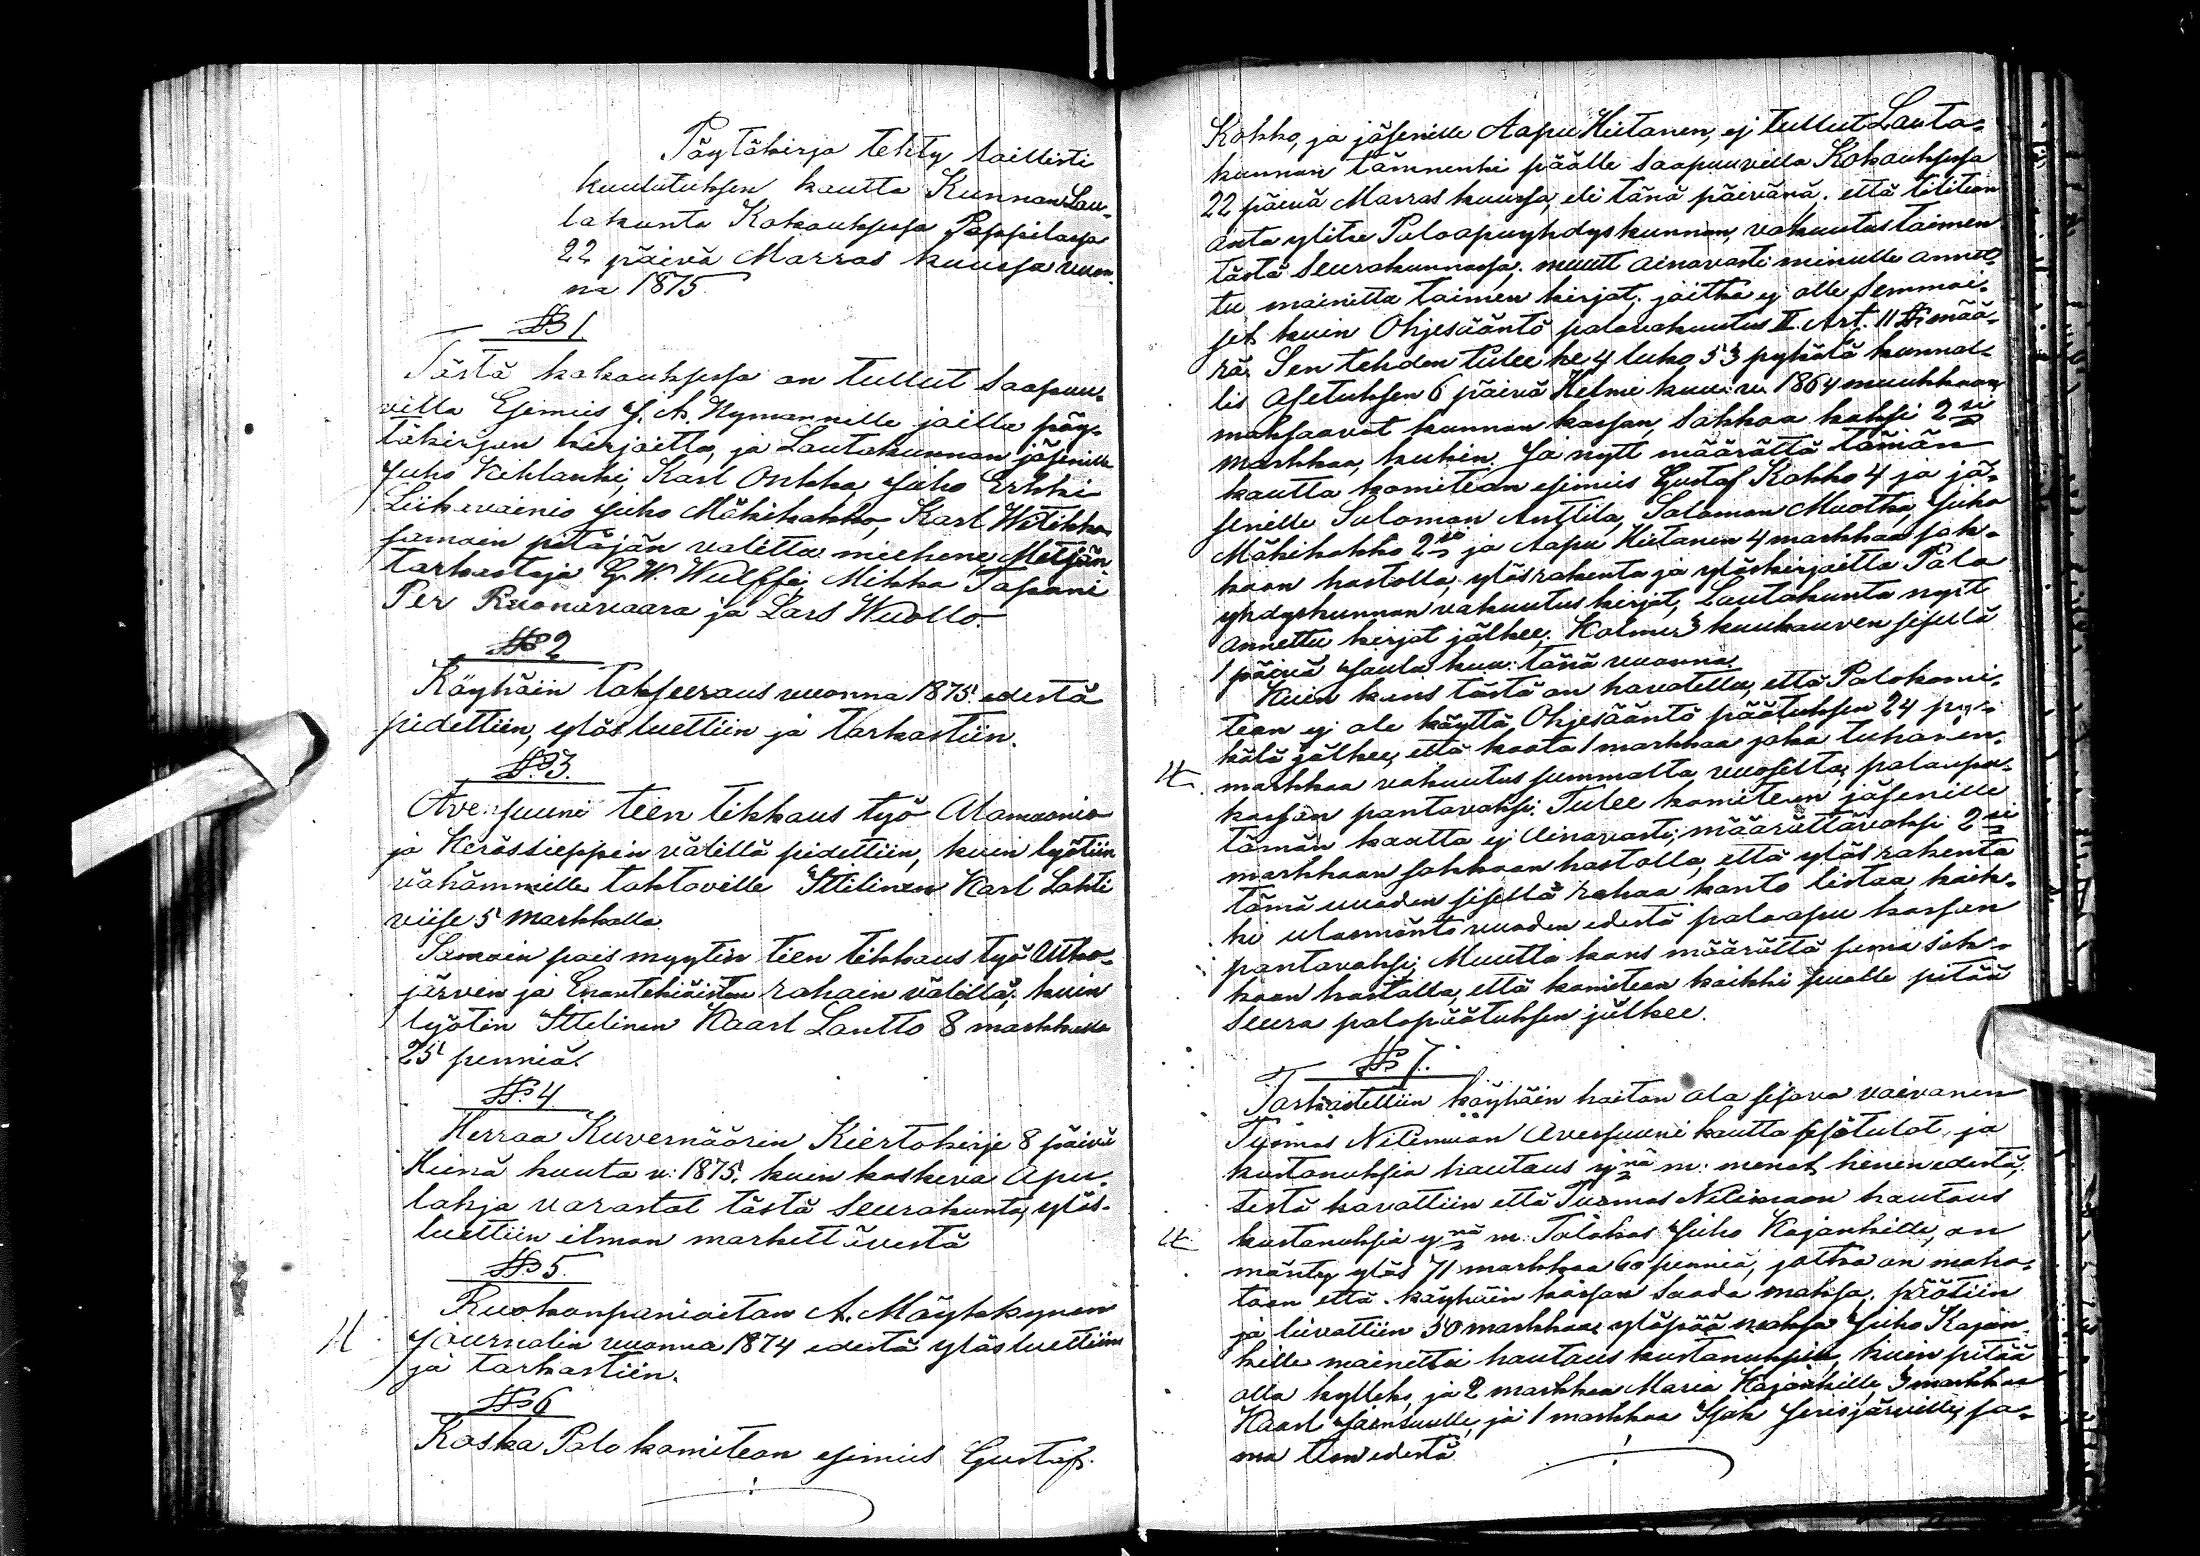 Pöytäkirja tehty laillisti
kuulutuksen kautta Kunnan Lau-
lakunta Kokouksesa Pappilasa
22 päivä Marras kuussa vuon-
na 1875.
§ 1
Tästä kokouksesa on tullut saapuu-
villa Esimies J. A. Nymannille joilla pöy-
täkirjan kirjoitta, ja Lautakunnan jäsenille
Juho Kehlanki, Karl Onkka Juho Erkki
Liikavainio Juho Mäkikokko, Karl Witikko
samoin pitäjän valittu miehene Metsän
tarkastaja G. W. Wulffi, Mikko Tapani
Per Ruonavaara ja Lars Wuollo.
§ 2
Köyhäin takseeraus vuonna 1875 edestä
pidettiin, ylösluettiin ja tarkastiin.
§ 3.
Ave:suuni teen tikkaus työ Alamuonio
ja Kerässieppin välillä pidettiin, kuin lyötiin
vähämmille tahtoville Ittelinen Karl Lahti
viise 5 markkalla.
Samoin pois myytin tien tikkaus työ Utko-
järven ja Enontekiäisten rahain välillä, kuin
lyötin Ittelinen Kaarl Lantto 8 markkalla
25 penniä.
§ 4.
Herraa Kuvernöörin Kiertokirje 8 päivä
Heinä kuuta v: 1875, kuin koskeva Apu-
lahja varastot tästä seurakunta, ylös-
luettiin ilman markettävestä
§ 5.
Ruokonpanioitan A. Mäykkynen
Journalin vuonna 1874 edestä ylösluettiin
ja tarkastiin.
§ 6
Koska Palo komitean esimies Gustaf
Kokko, ja jäsenille Aapu Hietanen, ej tullut Lauta-
kunnan tämnenki päälle saapuuvilla Kokouksesa
22 päivä Marras kuussa, eli tänä päivänä. että tititeon
anta ylitse Paloapuyhdyskunnan, vakuutustoimen
tästä seurakunnasa; muutt ainavasti minulle annet-
tu mainittu toimen kirjat, joitka ej olle semmoi-
set kuin Ohjesääntö palovakuutus II. Art. 11 § mää-
rä. Sen tehden tulee he 4 luko 53 pykästä kunnal-
lis Asetuksen 6 päivä Helmi kuu: v. 1864 muukkaan
maksaavat kunnan kassan sakkoa kaksi 2 si
markkaa, kukin. Ja nytt määrättä tämän
kautta komitean esimies Gustaf Kokko 4 ja jä-
senille Salomon Anttila, Salomon Muotka, Juho
Mäkikokko 2 si ja Aapu Hietanen 4 markkaa sak-
koon hastolla, ylösrakenta ja ylöskirjoitta Palo
yhdyskunnan vakuutus kirjat, Lautakunta nytt
annettu kirjat jälkee, Kolmes kuukauven sisellä
1 päivä Joulu kuu: tänä vuonna.
Kuin kans tästä on havatettu, että Palokomi-
tean ej ole käyttä Ohjesääntö päätuksen 24 py-
kälä jälkee, että koota 1 markkaa joka tuhanen-
markkaa vakuutus summalta vuosilta, paloapu-
kassan pantavaksi. Tulee komitean jäsenille
tämän kautta ej ainavasti; määrättävaksi 2 si
markkaan sakkoon hastolla, että ylös rakenta
tämä vuoden sisellä rahaa kanto listaa, kaik-
ki ulosmänto vuoden edestä paloapu kassan
pantavaksi; Muutta kans määrättä sema sak-
koon hastalla, että komitean kaikki puolle pitää
seura palopäätuksen jälkee.
§ 7.
Tarkastettiin köyhäin haiton ala sisava vaivanen
Tuomas Nilimaan Avessuuni kautta sisätulot ja
kustanuksia hautaus y: nä m: menot hienen edestä;
testä havattiin että Tuomas Nilimaan hautaus
kustanuksia y nä m Talokas Juho Kajankille, on
mänty ylös 71 markkaa 60 penniä, jotka on maho-
toon että köyhäin kassan saada maksa. päätiin
ja luvattiin 50 markkaa ylöpää maksa Juho Kajan-
kille mainittu hautaus kustanuksia, kuin pitää
olla kylleks, ja 2 markkaa Maria Kajankille, 3 markkaa
Kaarl Jäensuulle, ja 1 markkaa Isak Jerisjärville, sa-
ma tien edestä